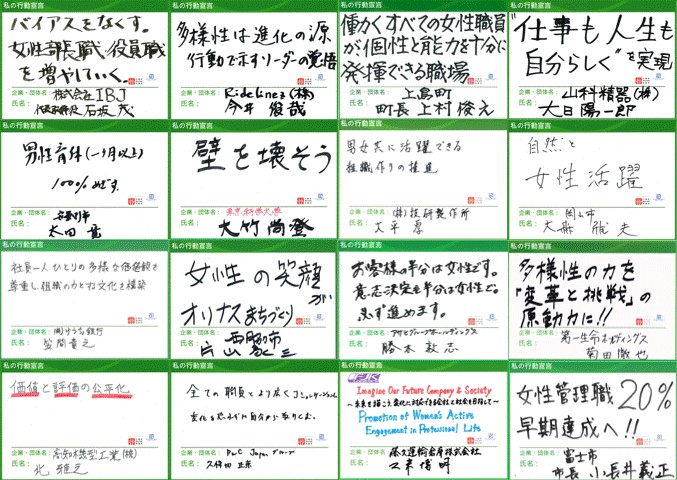 私の行動宣言
バイアスをなくす。
女性課長職・役員職
を増やしていく。
企業・団体名: 株式会社IBJ
氏名: 代表取締役 石坂 茂
私の行動宣言
多様性は進化の源
行動で示すリーダーの覚悟
企業・団体名: Ridelinez(株)
氏名: 今井 俊哉
私の行動宣言
働くすべての女性職員
が個性と能力を十分に
発揮できる職場
企業・団体名: 上島町
氏名: 町長 上村 俊之
私の行動宣言
"仕事も人生も
自分らしく"を実現
企業・団体名: 山科精器(株)
氏名: 大日 陽一郎
私の行動宣言
男性育休(一ヶ月以上)
100%めざす。
企業・団体名:
氏名: 太田
私の行動宣言
壁を壊そう
企業・団体名: 東京科学大学
氏名: 大竹 尚登
私の行動宣言
男女共に活躍できる
組織作りの推進
企業・団体名: (株)技研製作所
氏名: 大平 厚
私の行動宣言
自然と
女性活躍
企業・団体名: 岡山市
氏名: 大森 雅夫
私の行動宣言
社員一人ひとりの多様な価値観を
尊重し、組織のカとなる文化を構築
企業・団体名: (株)ゆうちょ銀行
氏名: 笠間 貴之
私の行動宣言
女性の笑顔が
オリナスまちづくり
企業・団体名: 西脇市
氏名: 片山 象三
私の行動宣言
お客様の半分は女性です。
意志決定も半分は女性で。
必ず進めます。
企業・団体名: アサヒグループホールディングス
氏名: 勝木 敦志
私の行動宣言
多様性の力を
「変革と挑戦」の
原動力に!!
企業・団体名: 第一生命ホールディングス
氏名: 菊田 徹也
私の行動宣言
価値と評価の公平化
企業・団体名: 高知機型工業(株)
氏名: 北 雅之
私の行動宣言
全ての職員とより広くコミュニケーションし
変化を
企業・団体名: PwC Japan グループ
氏名: 久保田 正崇
私の行動宣言
Imagine Our Future Company & Society
Promotion of Women's Active
Engagement in Professional Life
企業・団体名: 藤久運輸倉庫株式会社
氏名: 久米 博明
私の行動宣言
女性管理職20%
早期達成へ!!
企業・団体名: 富士市
氏名: 市長 小長井義正